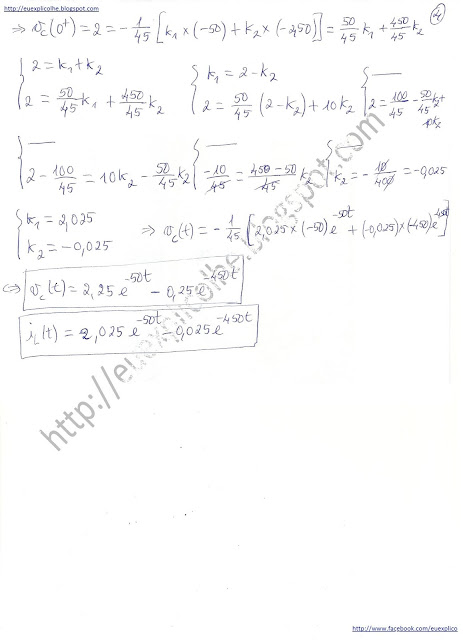 http://euexplicolhe.blogspot.com
4
⇒ v_c(0⁺) = 2 = -1/45 [k₁ × (-50) + k₂ × (-450)] = 50/45 k₁ + 450/45 k₂
{ 2 = k₁ + k₂ { k₁ = 2 - k₂ { ——
{ 2 = 50/45 k₁ + 450/45 k₂ { 2 = 50/45 (2 - k₂) + 10k₂ { 2 = 100/45 - 50/45 k₂ + 10k₂
{ —— { —— { ——
{ 2 - 100/45 = 10k₂ - 50/45 k₂ { -10/45 = (450 - 50)/45 k₂ { k₂ = -10/400 = -0,025
{ k₁ = 2,025
{ k₂ = -0,025 ⇒ v_c(t) = -1/45 [2,025 × (-50) e^(-50t) + (-0,025) × (-450) e^(-450t)]
⇔ v_c(t) = 2,25 e^(-50t) - 0,25 e^(-450t)
i_L(t) = 2,025 e^(-50t) - 0,025 e^(-450t)
http://euexplicolhe.blogspot.com
http://www.facebook.com/euexplico